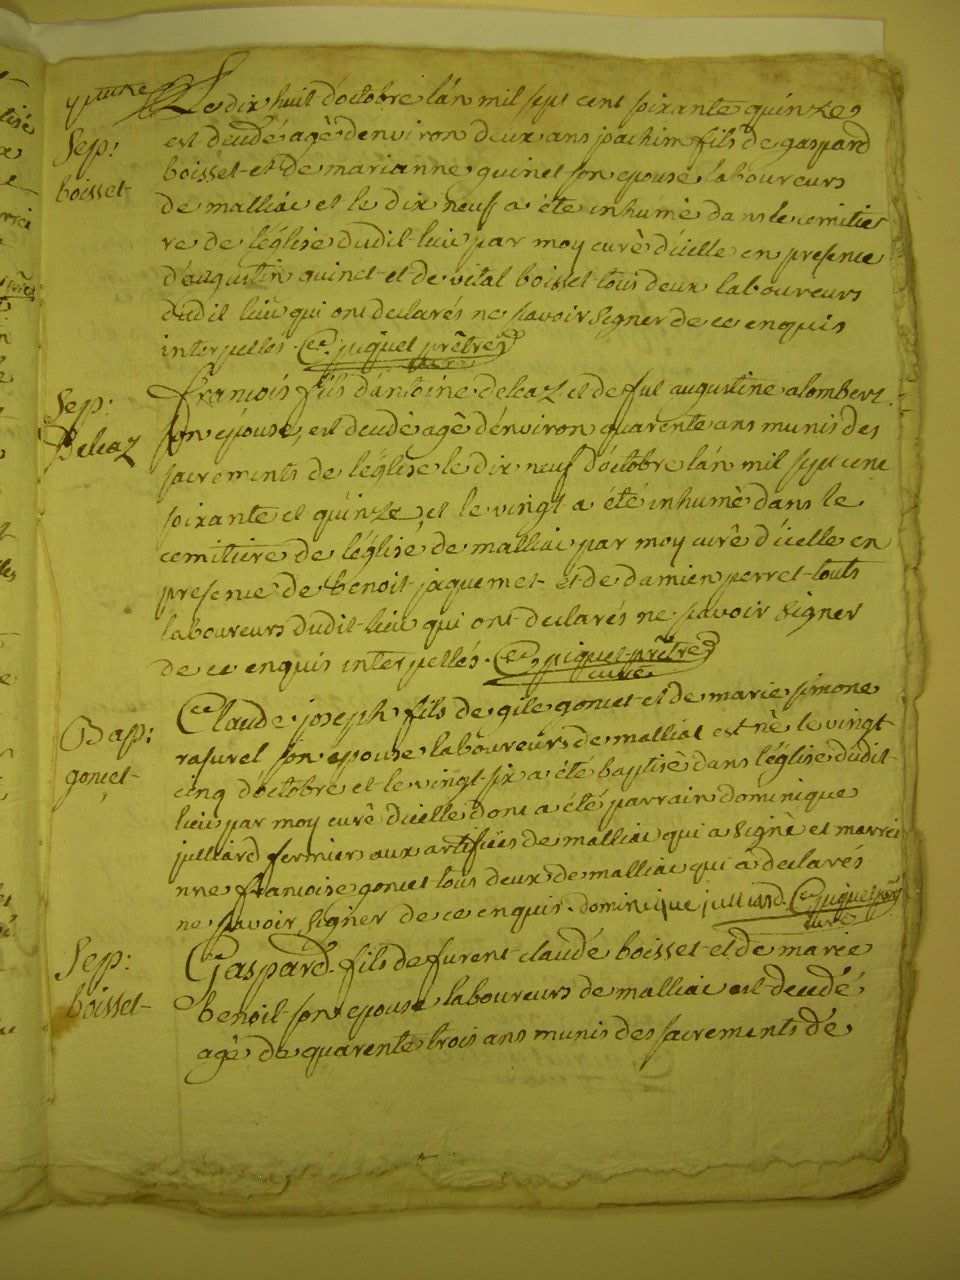 Le dix huit d'octobre l'an mil sept cent soixante quinze
est decedé agê d'environ deux ans joachim fils de gaspard
Sep: boisset
boisset et de marianne quinet son epouse laboureurs
de malliac et le dix neuf a été inhumè dans le cemitie
re de l'église dudit lieu par moy curê d'icelle en presence
d'augustin quinet et de vital boisset tous deux laboureurs
dudit lieu qui ont declarés ne savoir signer de ce enquis
interpellés. juquel prêtre
Sep:
Belcaz
françois fils d'antoine belcaz et de fut augustine alombert
son epouse, est decedé agê d'environ quarente ans munis des
sacrements de l'église le dix neuf d'octobre l'an mil sept cent
soixante et quinze, et le vingt a été inhumè dans le
cemitiere de l'église de malliac par moy curê d'icelle en
presence de benoit jaquemet et de damien perret touts
laboureurs dudit lieu qui ont declarés ne savoir signer
de ce enquis interpellés. juquel prêtre
curé
Bap:
gonet
Claude joseph fils de gile gonet et de marie simone
rasurel son epouse laboureurs de malliac est nê le vingt
cinq d'octobre et le vingt six a été baptisè dans l'église dudit
lieu par moy curê d'icelle dont a été parrain dominique
julliard fermier aux artifices de malliac qui a signè et marrei
nne francoise gonet tous deux de malliac qui a declarés
ne savoir signer de ce enquis. dominique julliard. juquel
curé
Sep:
boisset
Gaspard fils de furent claude boisset et de marie
benoit son epouse laboureurs de malliac est decedé
agê de quarente trois ans munis des sacrements de